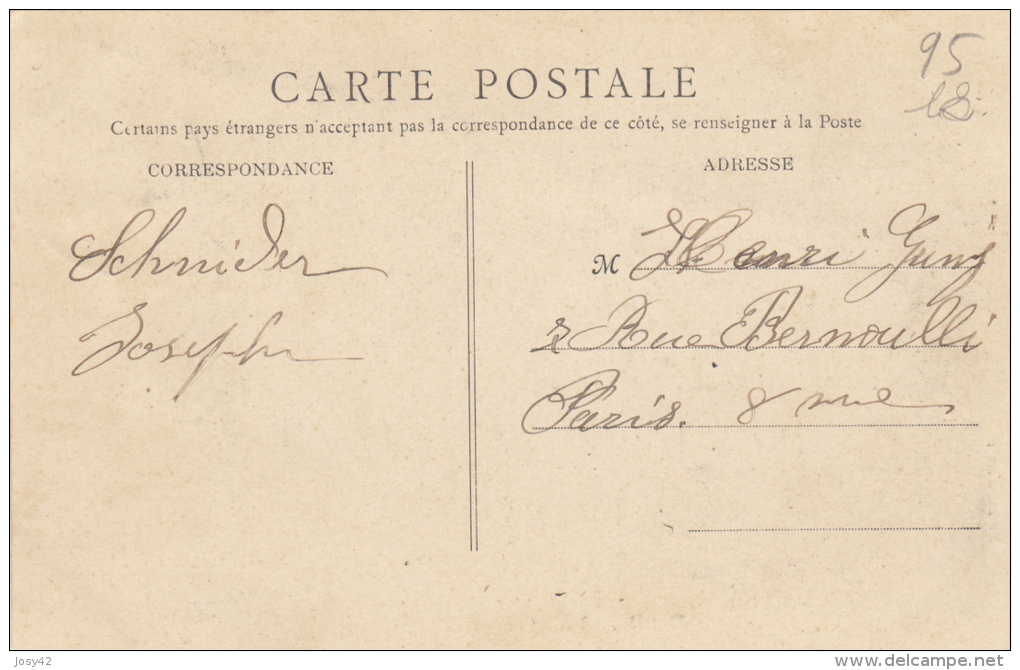 95
18
CARTE POSTALE
Certains pays étrangers n'acceptant pas la correspondance de ce côté, se renseigner à la Poste
CORRESPONDANCE
ADRESSE
Schnider
Joseph
M Henri
2 Rue Bernoulli
Paris. 8 me
Josy42
www.delcampe.net